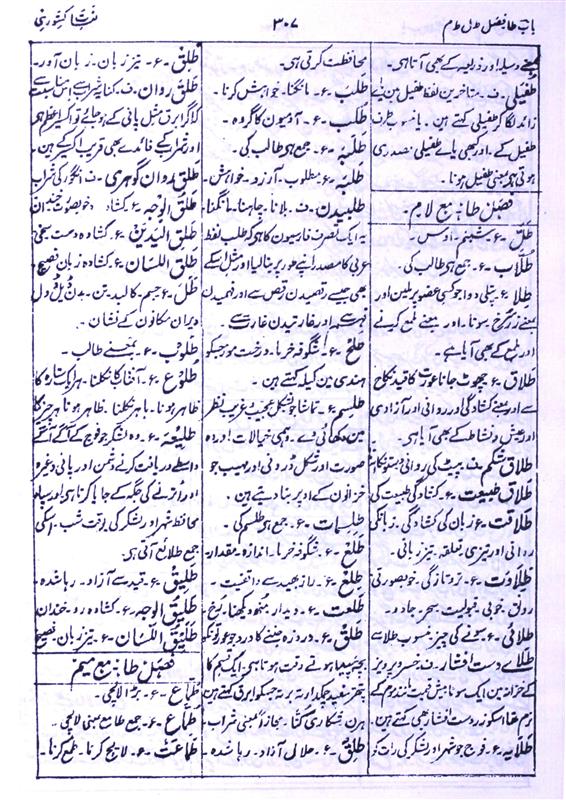 باب طا فصل ط ل ط م
۳۰۷
لغات کشوری
بمعنے وسیلہ اور ذریعہ کے بھی آتا ہی۔
طفیلی۔ ف۔ متاخرین لفظ طفیل میں یاے
زائد لگا کر طفیلی کہتے ہیں۔ یا منسوب طرف
طفیل کے۔ اور کبھی یاے طفیلی مصدری
ہوتی ہی بمعنی طفیل ہونا۔
فصل طا مع لام۔
طل۔ ع۔ شبنم۔ اوس۔
طلاب۔ ع۔ جمع ہی طالب کی۔
طلا۔ ع۔ پتلی دوا جو کسی عضو پر ملیں اور
بمعنے زر سرخ۔ سونا۔ اور بمعنے ملمع کرنے
اور ملمع کے بھی آیا ہے۔
طلاق۔ ع۔ چھوٹ جانا عورت کا قید نکاح
سے اور بمعنے کشادگی اور روانی اور آزادی
اور عیش و نشاط کے بھی آیا ہی۔
طلاق شکم۔ ف۔ پیٹ کی روانی
طلاق طبیعت۔ ع۔ کشادگی طبیعت کی
طلاقت۔ ع۔ زبان کی کشادگی۔ زبان کی
روانی اور تیزی۔ تیز زبانی۔
طلاوت۔ ع۔ تروتازگی۔ خوبصورتی
رونق۔ خوبی۔ قبولیت۔ سحر۔ جادو۔
طلائی۔ ع۔ سونے کی چیز منسوب طلا سے
طلاے دست افشار۔ ف۔ خسرو پرویز
کے خزانہ میں ایک سونا بیش قیمت مانند موم کے
نرم تھا اسکو زر دست افشار بھی کہتے ہیں۔
طلایہ۔ ع۔ فوج جو شہر اور لشکر کی رات کو
محافظت کرتی ہی۔
طلب۔ ع۔ مانگنا۔ خواہش کرنا۔
طلب۔ ع۔ آدمیوں کا گروہ۔
طلبہ۔ ع۔ جمع ہی طالب کی۔
طلبہ۔ ع۔ مطلوب۔ آرزو۔ خواہش۔
طلبیدن۔ ف۔ بلانا۔ چاہنا۔ مانگنا
یہ ایک تصرف فارسیوں کا ہی کہ طلب لفظ
عربی کا مصدر اپنے طور پر بنا لیا اور مثل اسکے
بھی جیسے رقصیدن رقص سے اور فہمیدن
فہم سے اور غارتیدن غارت سے۔
طلح۔ ع۔ شگوفہ خرما۔ درخت موز جسکو
ہندی میں کیلہ کہتے ہیں۔
طلسم۔ ع۔ تماشا جو شکل عجیب و غریب نظر
میں دکھائی دے۔ وہمی خیالات اور وہ
صورت اور شکل ڈراونی اور مہیب جو
خزانوں کے اوپر بنا دیتے ہیں۔
طلسمات۔ ع۔ جمع ہی طلسم کی۔
طلع۔ ع۔ شگوفہ خرما۔ اندازہ۔ مقدار۔
طلع۔ ع۔ راز بھید سے واقفیت۔
طلعت۔ ع۔ دیدار۔ منھ دیکھنا۔ رخ۔
طلق۔ ع۔ درد زہ جننے کا درد جو عورتونکو
بچہ پیدا ہوتے وقت ہوتا ہی۔ ایک قسم کا
پتھر سفید چمکدار تہ بر تہ جسکو ابرق کہتے ہیں
ہرن شکاری کتا۔ مجازاً بمعنی شراب۔
طلق۔ ع۔ حلال۔ آزاد۔ رہا شدہ۔
طلق۔ ع۔ تیز زبان۔ زبان آور۔
طلق روان۔ ف۔ کنایہ شراب سے اس مناسبت سے
کہ اگر ابرق مثل پانی کے ہو جائے تو اکسیر اعظم ہو
اور شراب کے فائدے بھی قریب اکسیر کے ہیں۔
طلق روان گوہری۔ ف۔ انگور کی شراب
طلق الوجہ۔ ع۔ کشادہ رو خوبصورت خندان
طلق الیدین۔ ع۔ کشادہ دست۔ سخی
طلق اللسان۔ ع۔ کشادہ زبان فصیح
طلل۔ ع۔ جسم۔ کالبد۔ تن۔ بدن
ویران مکانوں کے نشان۔
طلوب۔ ع۔ بمعنے طالب۔
طلوع۔ ع۔ آفتاب کا نکلنا۔ ہر ایک ستارہ کا
ظاہر ہونا۔ باہر نکلنا۔ ظاہر ہونا ہر چیز کا
طلیعہ۔ ع۔ وہ لشکر جو فوج کے آگے آگے
واسطے دریافت کرنے دشمن اور پانی وغیرہ
اور اترنے کی جگہ کے جایا کرتا ہی اور سپاہ
محافظ شہر اور لشکر کی بوقت شب۔ اسکی
جمع طلائع آتی ہی۔
طلیق۔ ع۔ قید سے آزاد۔ رہا شدہ۔
طلیق الوجہ۔ ع۔ کشادہ رو۔ خندان
طلیق اللسان۔ ع۔ تیز زبان۔ فصیح
فصل طا مع میم
طماع۔ ع۔ بڑا لالچی۔
طماع۔ ع۔ جمع طامع بمعنی لالچی۔
طماعت۔ ع۔ لالچ کرنا۔ طمع کرنا۔